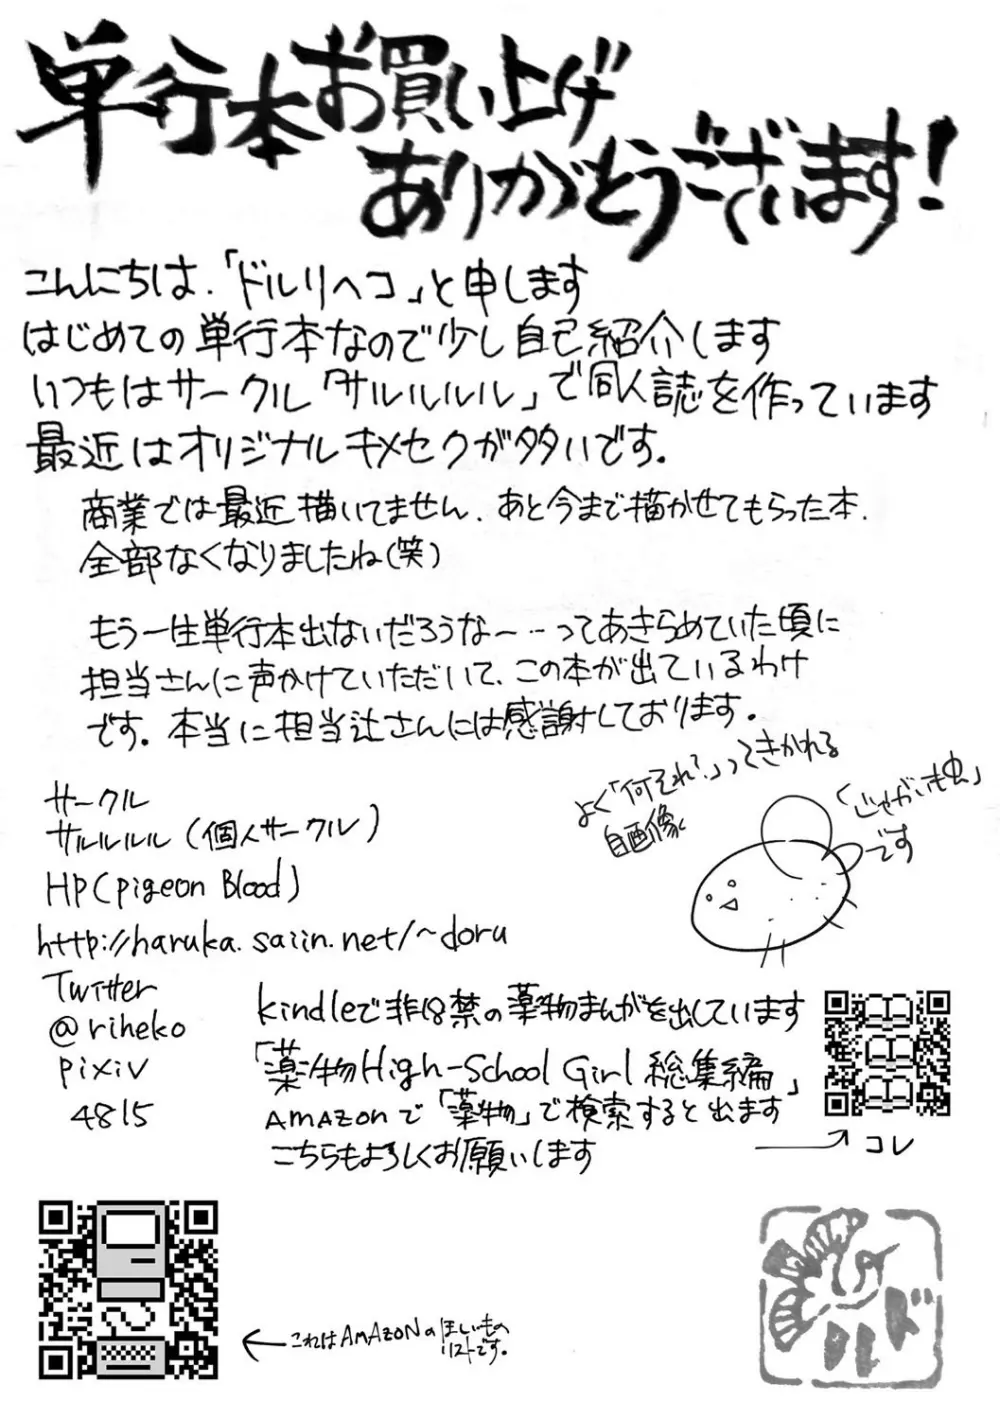 単行本お買い上げ
ありがとうございます!
こんにちは、「ドルリヘコ」と申します
はじめての単行本なので少し自己紹介します
いつもはサークル「サルルルル」で同人誌を作っています
最近はオリジナルキメセクが多いです。
商業では最近描いてません、あと今まで描かせてもらった本、
全部なくなりましたね(笑)
もう一生単行本出ないだろうな〜…ってあきらめていた頃に
担当さんに声かけていただいて、この本が出ているわけ
です。本当に担当辻さんには感謝しております。
よく「何それ?」ってきかれる
自画像
「じゃがいも虫」
です
サークル
サルルルル(個人サークル)
HP(pigeon Blood)
http://haruka.saiin.net/~doru
Twitter
@riheko
pixiv
4815
kindleで非18禁の薬物まんがを出しています
「薬物High-School Girl 総集編」
Amazonで「薬物」で検索すると出ます
こちらもよろしくお願いします
コレ
これはAMAZONのほしいもの
リストです。
ドル